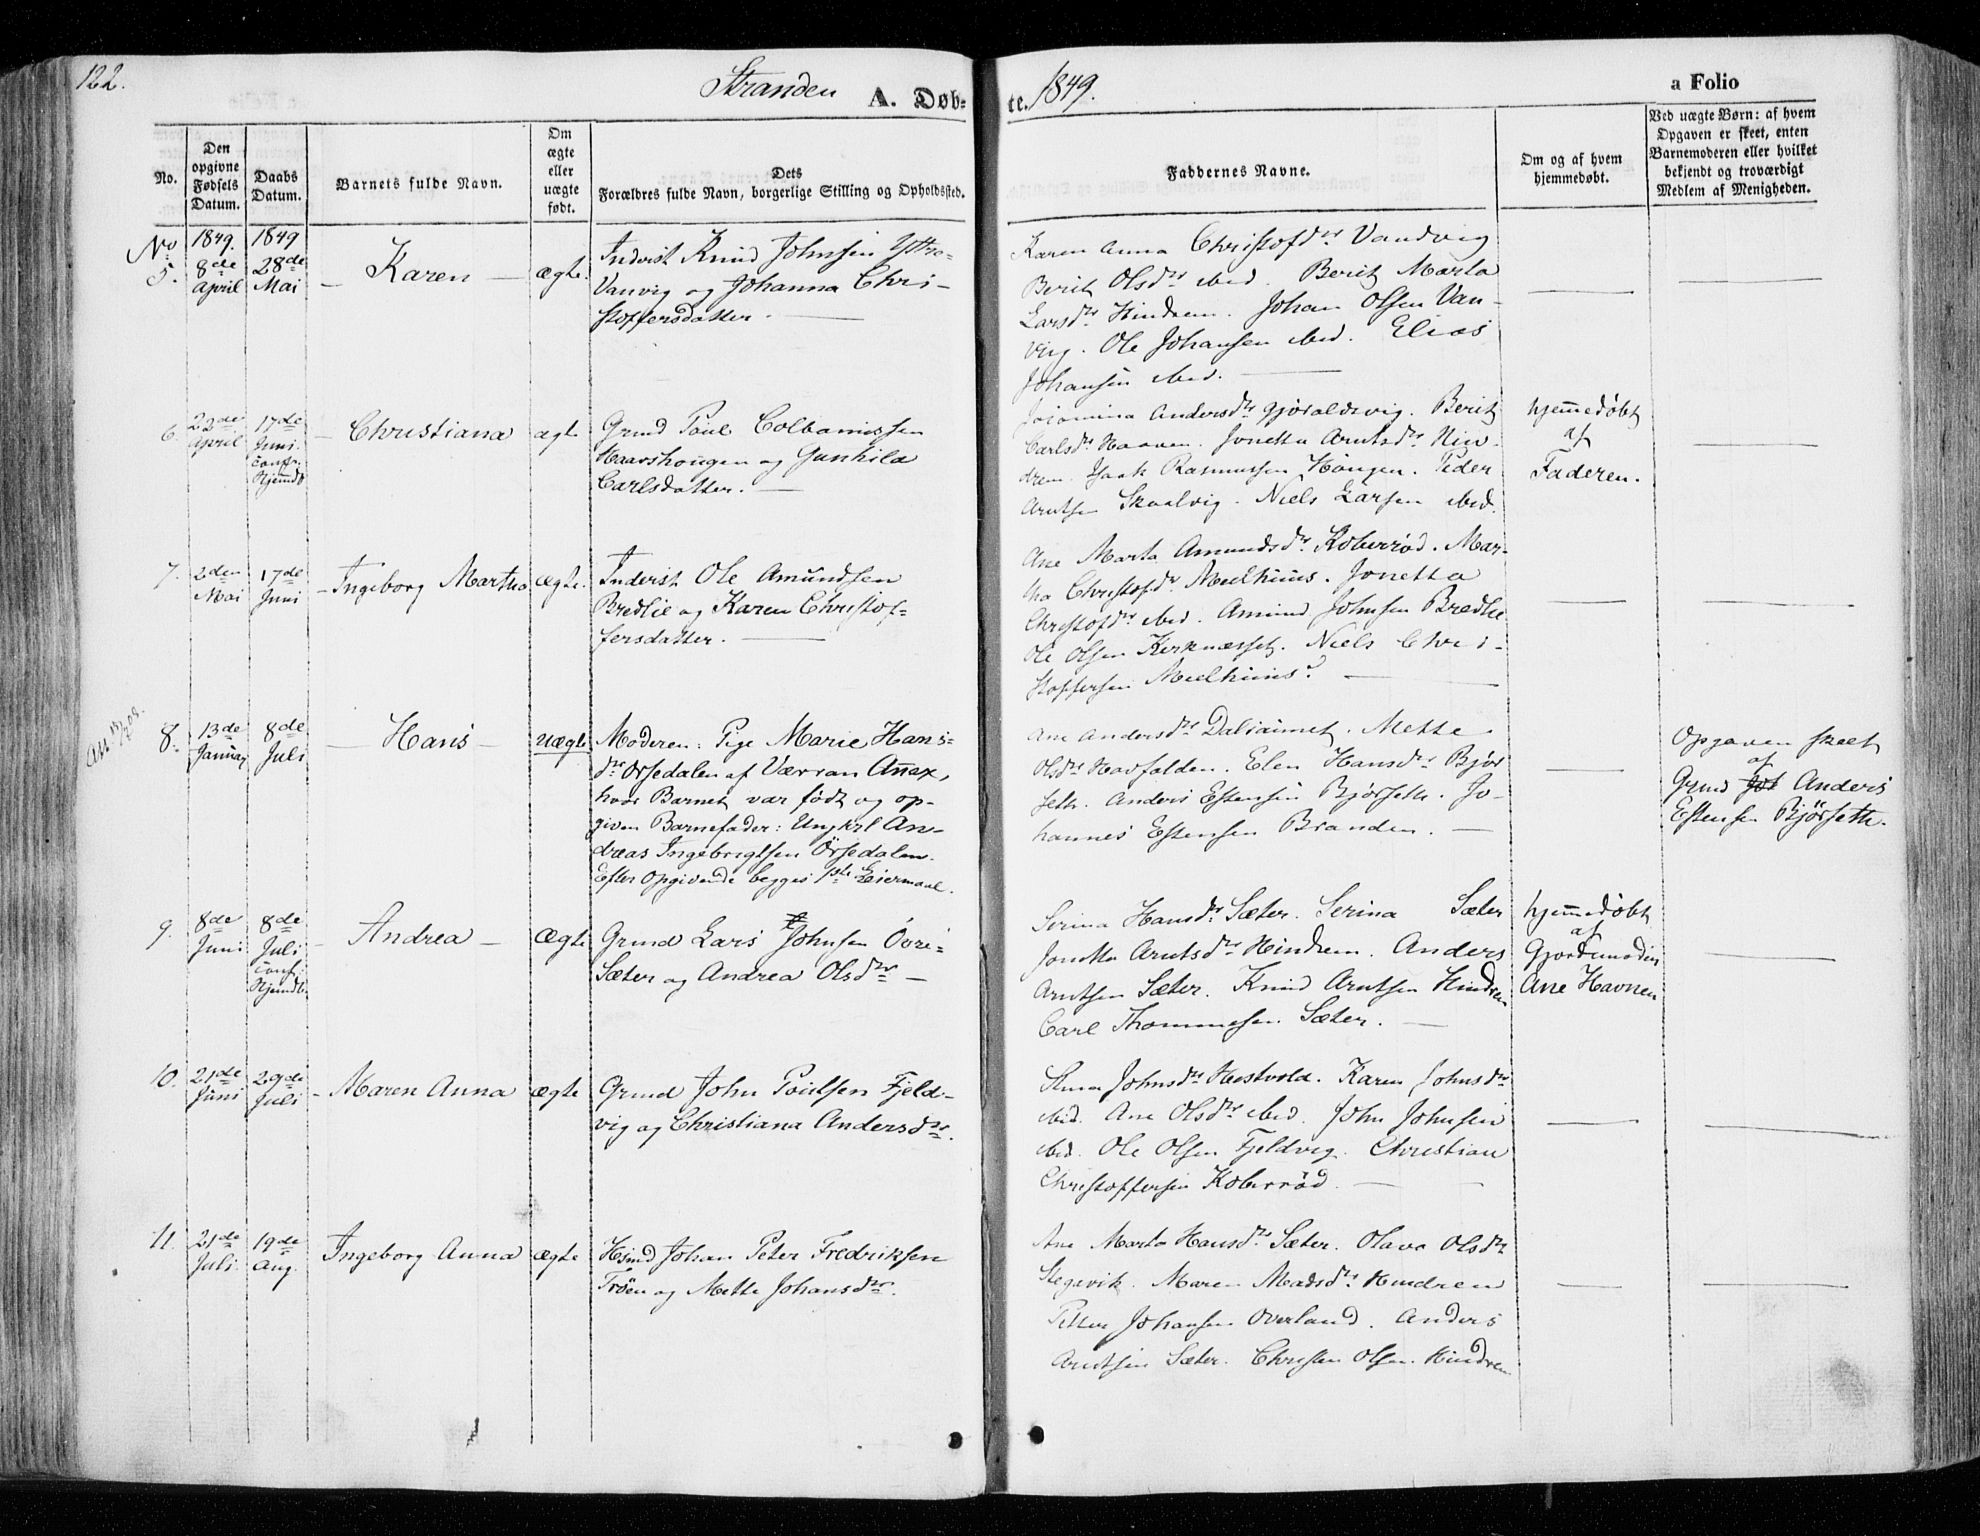 122.
Stranden
A. Døb-
te. 1849.
a Folio
No.
Den
opgivne
Fødsels
Datum.
Daabs
Datum.
Barnets fulde Navn.
Om
ægte
eller
uægte
født.
Dets
Forældres fulde Navn, borgerlige Stilling og Opholdssted.
Faddernes Navne.
Om og af hvem
hjemmedøbt.
Ved uægte Børn: af hvem
Opgaven er skeet, enten
Barnemoderen eller hvilket
bekjendt og troværdigt
Medlem af Menigheden.
No
5.
1849.
8de
April
1849
28de
Mai
Karen
ægte.
Inderst Knud Johnsen Yttre-
Vanvig og Johanna Chri-
stoffersdatter.
Karen Anna Christofdtr Vandvig
Berit Olsdtr ibid. Berit Marta
Larsdtr Hindrem. Johan Olsen Van-
vig. Ole Johansen ibid. Elias
Johansen ibid.
6.
April
17de
Juni
Conf.
Hjemdb
Christiana
ægte
Grmd Poul Colbanussen
Haarshougen og Gunhild
Carlsdatter.
Andersdtr Gjøraldsvig. Berit
Carlsdtr Haaven. Jonetta Arntsdtr Hin-
drem. Isaak Rasmussen Hougen. Peder
Arntsen Skaalvig. Niels Larsen ibid.
hjemmedøbt
af
Faderen.
7.
2den
Mai
17de
Juni
Ingeborg Martha
ægte.
Inderst Ole Amundsen
Bredlie og Karen Christof-
fersdatter.
Ane Marta Amundsdtr Koberrød. Mar-
tha Christofdtr Meelhuus. Jonetta
Christofdtr ibid. Amund Johnsen Bredlie
Ole Olsen Kirknæsset. Niels Chri-
stoffersen Meelhuus.
8.
13de
Januar
8de
Juli
Hans
uægte
Moderen: Pige Marie Hans-
dtr Orsedalen af Værran Anex,
hvor Barnet var født og op-
given Barnefader: Ungkrl An-
dreas Ingebrigtsen Örsedalen.
Efter Opgivende begges 1ste Leiermaal.
Ane Andersdtr Daliaunet. Mette
Olsdtr Havfalden. Elen Hansdtr Bjør
seth. Anders Estensen Bjørseth. Jo-
hannes Estensen Branden.
Opgaven skeet
af
Grmd Anders
Estensen Bjørseth.
9.
8de
Juni
8de
Juli
Conf.
Hjemdb.
Andrea
ægte
Grmd Lars Johnsen Övre-
Sæter og Andrea Olsdtr
Serina Hansdtr Sæter. Serina Sæter
Jonetta Arntsdtr Hindrem. Anders
Arntsen Sæter. Knud Arntsen Hindrem
Carl Thommesen Sæter.
hjemmedøbt
af
Gjordemoderen
Ane Havnen
10.
21de
Juni
29de
Juli
Maren Anna
ægte
Grmd John Poulsen Fjeld-
vig og Christiana Andersdtr.
Johnsdtr Hestvold. Karen Johnsdtr
ibid. Ane Olsdtr ibid. John Johnsen
ibid. Ole Olsen Fjeldvig. Christian
Christoffersen Koberrød.
11.
21de
Juli.
19de
Aug.
Ingeborg Anna
ægte
Hsmd Johan Peter Fredriksen
Trøen og Mette Johansdtr.
Ane Marta Hansdtr Sæter. Olava Olsdtr
Stegevik. Maren Madsdtr Hindrem
Petter Johansen Overland. Anders
Arntsen Sæter. Christen Olsen Hindrem